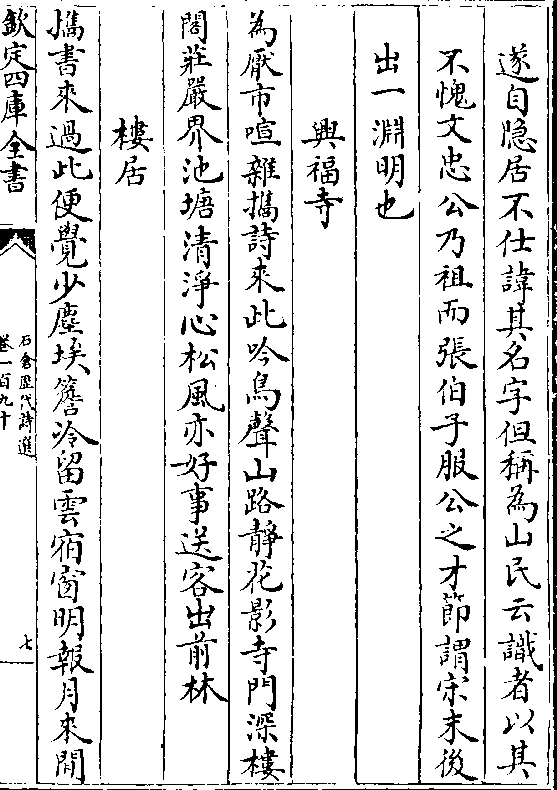 遂自隐居不仕諱其名字但稱為山民云識者以其
不愧文忠公乃祖而張伯子服公之才節謂宋末後
出一淵明也
興福寺
為厭市喧雜攜詩來此吟鳥聲山路靜花影寺門深樓
閣莊嚴界池塘清淨心松風亦好事送客出前林
樓居
攜書來過此便覺少塵埃簷冷留雲宿窗明報月來閒
欽定四庫全書
石倉歴代詩選
卷一百九十
七